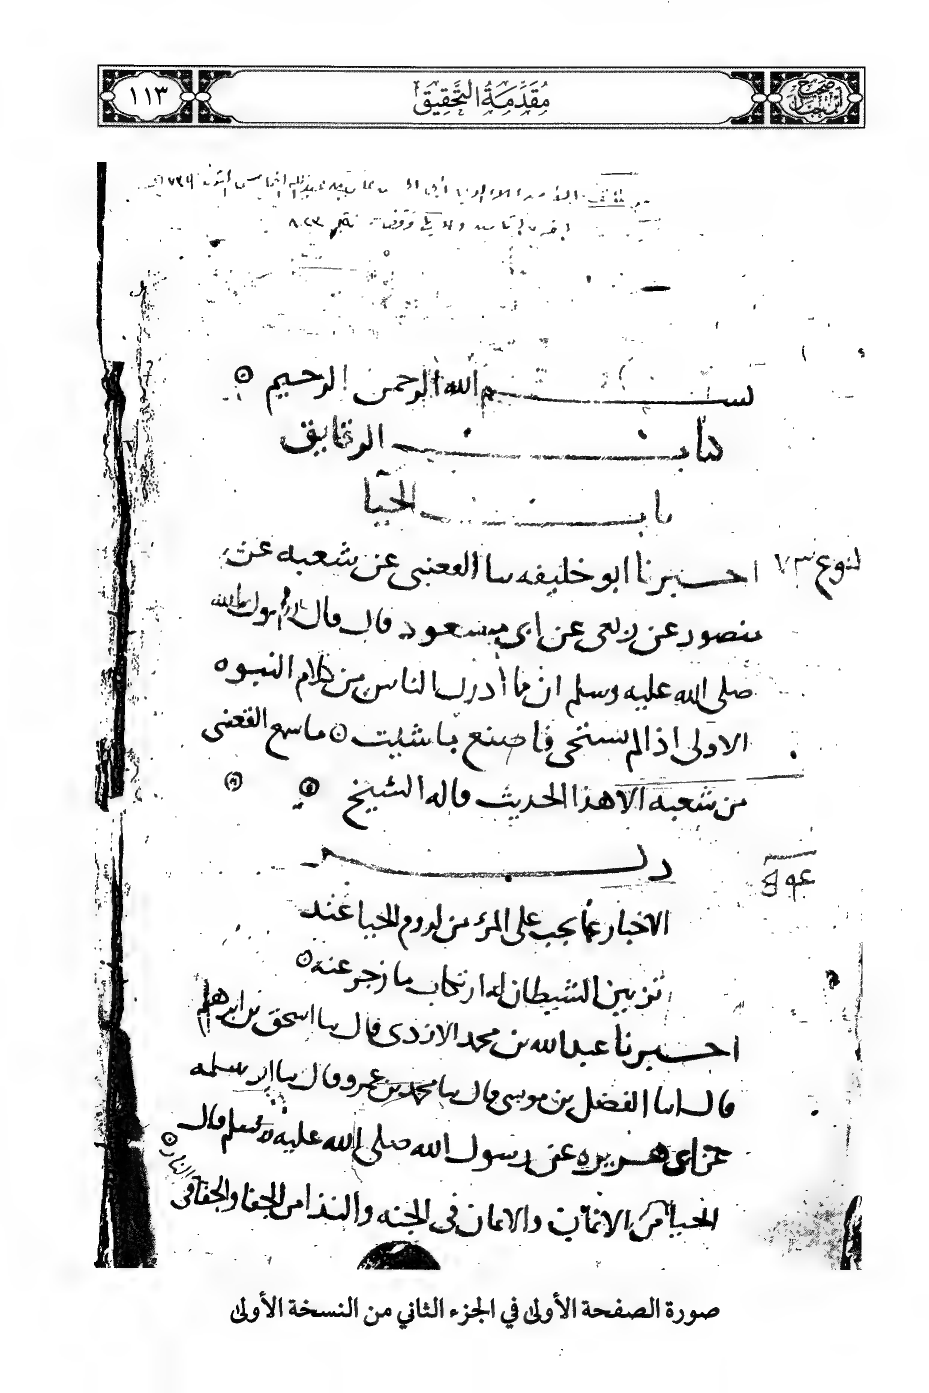 صحيح ابن حبان
مقدمة التحقيق
١١٣
بسم الله الرحمن الرحيم
كتاب الرقايق
باب الحيا
النوع ٧٣
اخبرنا ابو خليفه سا القعنبى عن شعبه عن
منصور عن ربعى عن ابى مسعود قال قال رسول الله
صلى الله عليه وسلم ان ما ادرك الناس من كلام النبوه
الاولى اذا لم تستحى فاصنع ما شيت ما سمع القعنبى
من شعبه الا هذا الحديث قاله الشيخ
ذكر
الاخبار عما يجب على المرء من لزوم الحيا عند
تزيين الشيطان له ارتكاب ما زجر عنه
اخبرنا عبد الله بن محمد الازدى قال سا اسحق بن ابرهيم
قال اسا الفضل بن موسى قال سا محمد بن عمرو قال سا ابو سلمه
عن ابى هريره عن رسول الله صلى الله عليه وسلم قال
الحيا من الايمان والايمان فى الجنه والبذا من الجفا والجفا فى
النار
صورة الصفحة الأولى في الجزء الثاني من النسخة الأولى